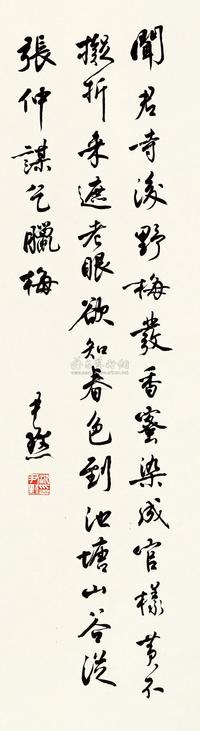 聞君寺後野梅發香蜜染成官樣黃不
擬折來遮老眼欲知春色到池塘山谷從
張仲謀乞臘梅
尹默